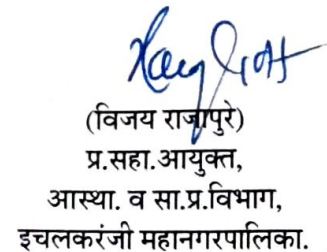 (विजय राजापुरे)
प्र.सहा.आयुक्त,
आस्था. व सा.प्र.विभाग,
इचलकरंजी महानगरपालिका.